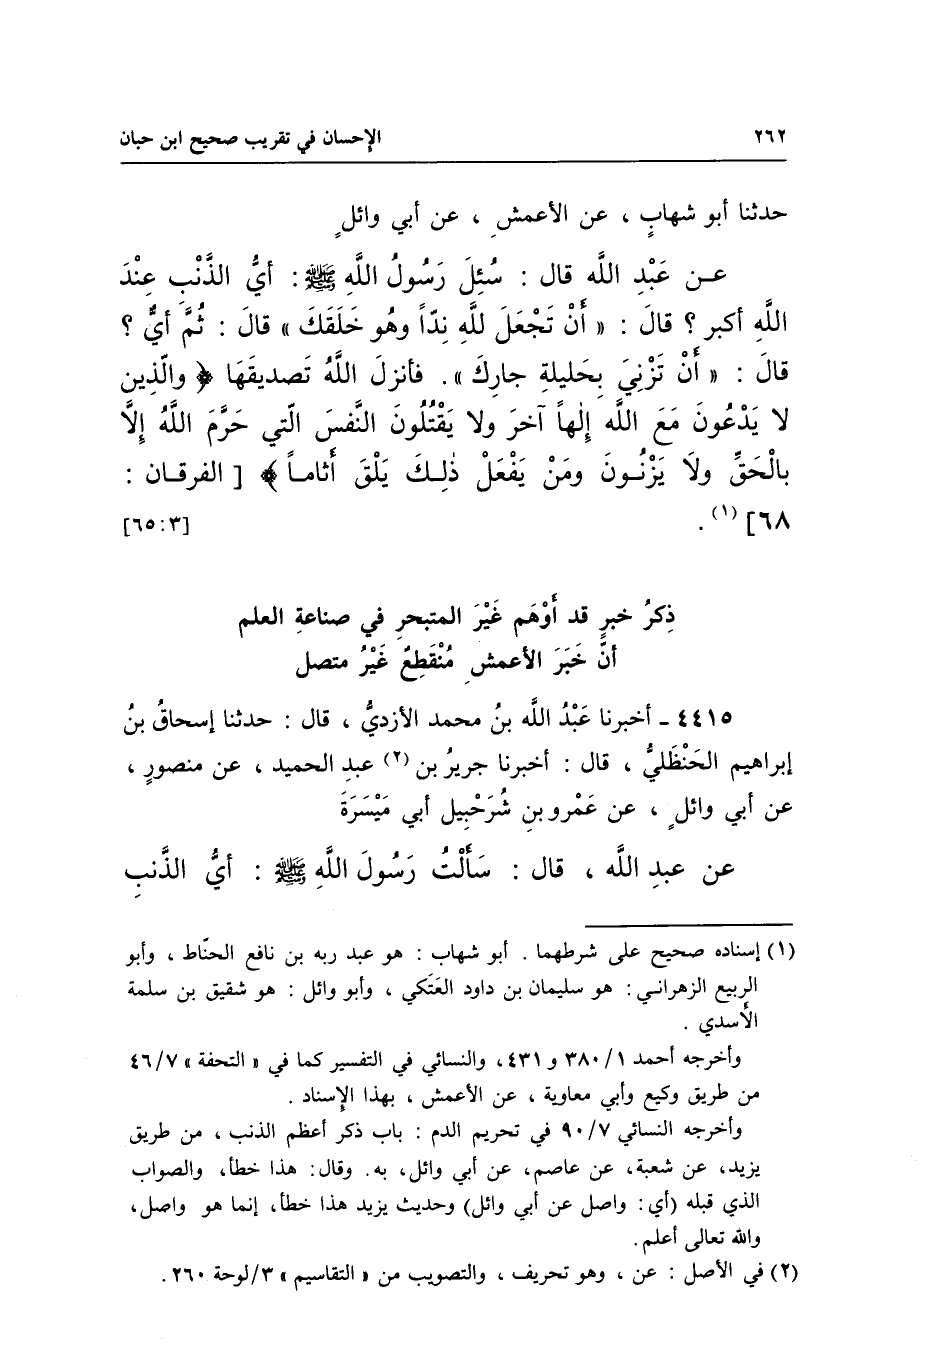 ٢٦٢ الإحسان في تقريب صحيح ابن حبان
حدثنا أبو شهابٍ ، عن الأعمشِ ، عن أبي وائلٍ
عـن عَبْدِ اللَّه قال : سُئِلَ رَسُولُ اللَّهِ ﷺ : أيُّ الذَّنْبِ عِنْدَ
اللَّهِ أكبر ؟ قالَ : « أَنْ تَجْعَلَ للَّهِ نِدّاً وهُو خَلَقَكَ » قالَ : ثُمَّ أيٌّ ؟
قالَ : « أَنْ تَزْنِيَ بِحَليلةِ جارِكَ ». فأنزلَ اللَّهُ تَصديقَهَا ﴿ والّذِين
لا يَدْعُونَ مَعَ اللَّه إلٰهاً آخرَ ولا يَقْتُلُونَ النَّفسَ الّتي حَرَّمَ اللَّهُ إلَّا
بالْحَقِّ ولَا يَزْنُـونَ ومَنْ يَفْعَلْ ذٰلِـكَ يَلْقَ أَثامـاً ﴾ [ الفرقـان :
٦٨] (١) . [٦٥:٣]
ذِكرُ خبرٍ قد أَوْهَم غَيْرَ المتبحرِ في صناعةِ العلم
أنَّ خَبَرَ الأعمشِ مُنْقَطِعٌ غَيْرُ متصل
٤٤١٥ ـ أخبرنا عَبْدُ اللَّه بنُ محمد الأزديُّ ، قال : حدثنا إسحاقُ بنُ
إبراهيم الحَنْظَليُّ ، قال : أخبرنا جريرُ بن (٢) عبدِ الحميد ، عن منصورٍ ،
عن أبي وائلٍ ، عن عَمْرو بنِ شُرَحْبِيل أبي مَيْسَرَةَ
عن عبدِ اللَّه ، قال : سَأَلْتُ رَسُولَ اللَّهِ ﷺ : أيُّ الذَّنبِ
(١) إسناده صحيح على شرطهما . أبو شهاب : هو عبد ربه بن نافع الحنّاط ، وأبو
الربيع الزهرانـي : هو سليمان بن داود العَتَكي ، وأبو وائل : هو شقيق بن سلمة
الأسدي .
وأخرجه أحمد ٣٨٠/١ و ٤٣١، والنسائي في التفسير كما في « التحفة » ٤٦/٧
من طريق وكيع وأبي معاوية ، عن الأعمش ، بهذا الإسناد .
وأخرجه النسائي ٩٠/٧ في تحريم الدم : باب ذكر أعظم الذنب ، من طريق
يزيد، عن شعبة، عن عاصم، عن أبي وائل، به. وقال: هذا خطأ، والصواب
الذي قبله (أي: واصل عن أبي وائل) وحديث يزيد هذا خطأ، إنما هو واصل،
والله تعالى أعلم.
(٢) في الأصل : عن ، وهو تحريف ، والتصويب من « التقاسيم » ٣/لوحة ٢٦٠.